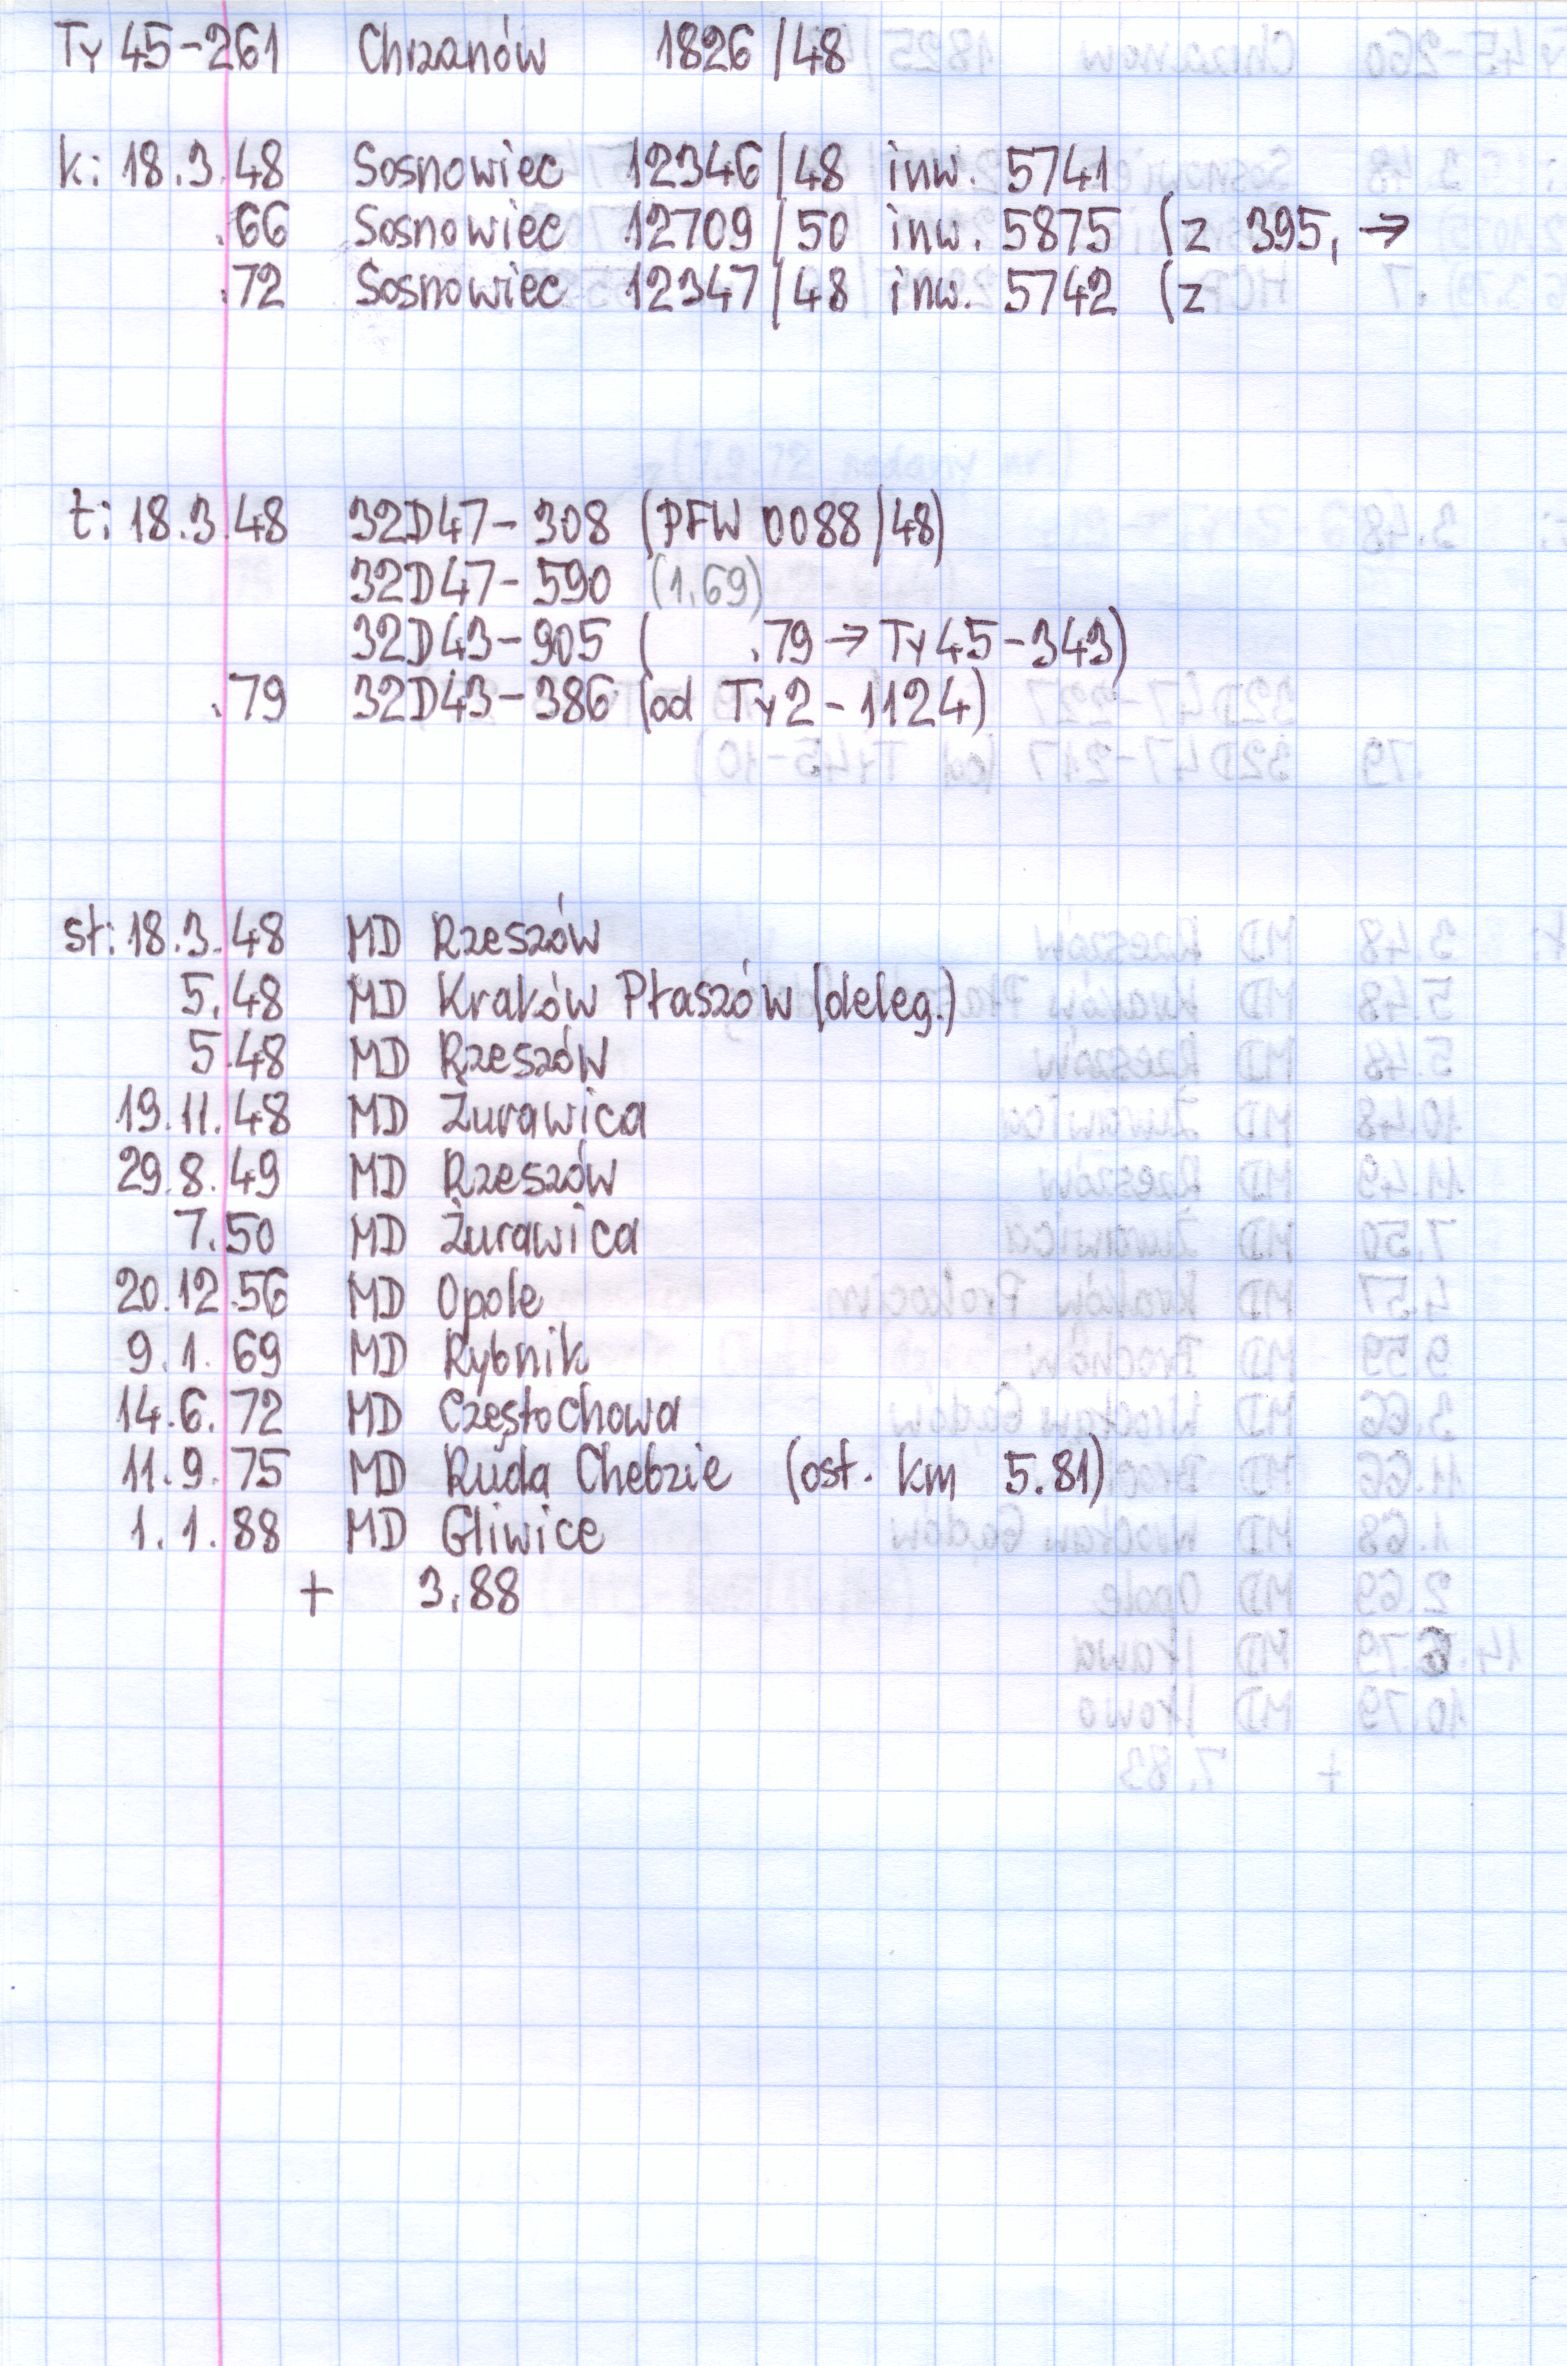 Ty 45-261 Chrzanów 1826/48
k: 18.3.48 Sosnowiec 12346/48 inw. 5741
.66 Sosnowiec 12709/50 inw. 5875 (z 395, →
.72 Sosnowiec 12347/48 inw. 5742 (z
t: 18.3.48 32D47-308 (PFW 0088/48)
32D47-590 (1.69)
32D43-905 ( .79 → Ty45-343)
.79 32D43-386 (od Ty2-1124)
st: 18.3.48 MD Rzeszów
5.48 MD Kraków Płaszów (deleg.)
5.48 MD Rzeszów
19.11.48 MD Żurawica
29.8.49 MD Rzeszów
7.50 MD Żurawica
20.12.56 MD Opole
9.1.69 MD Rybnik
14.6.72 MD Częstochowa
11.9.75 MD Ruda Chebzie (ost. km 5.81)
1.1.88 MD Gliwice
+ 3.88